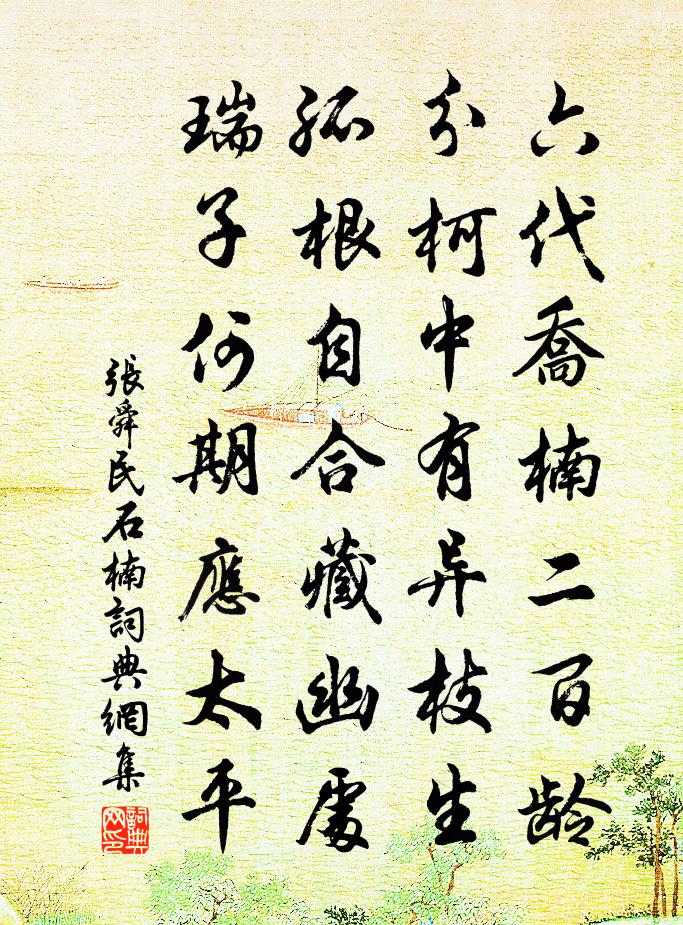 六代喬楠二百龄
分柯中有异枝生
孤根自合藏幽處
瑞子何期應太平
張舜民石楠詞典網集
詞典网印